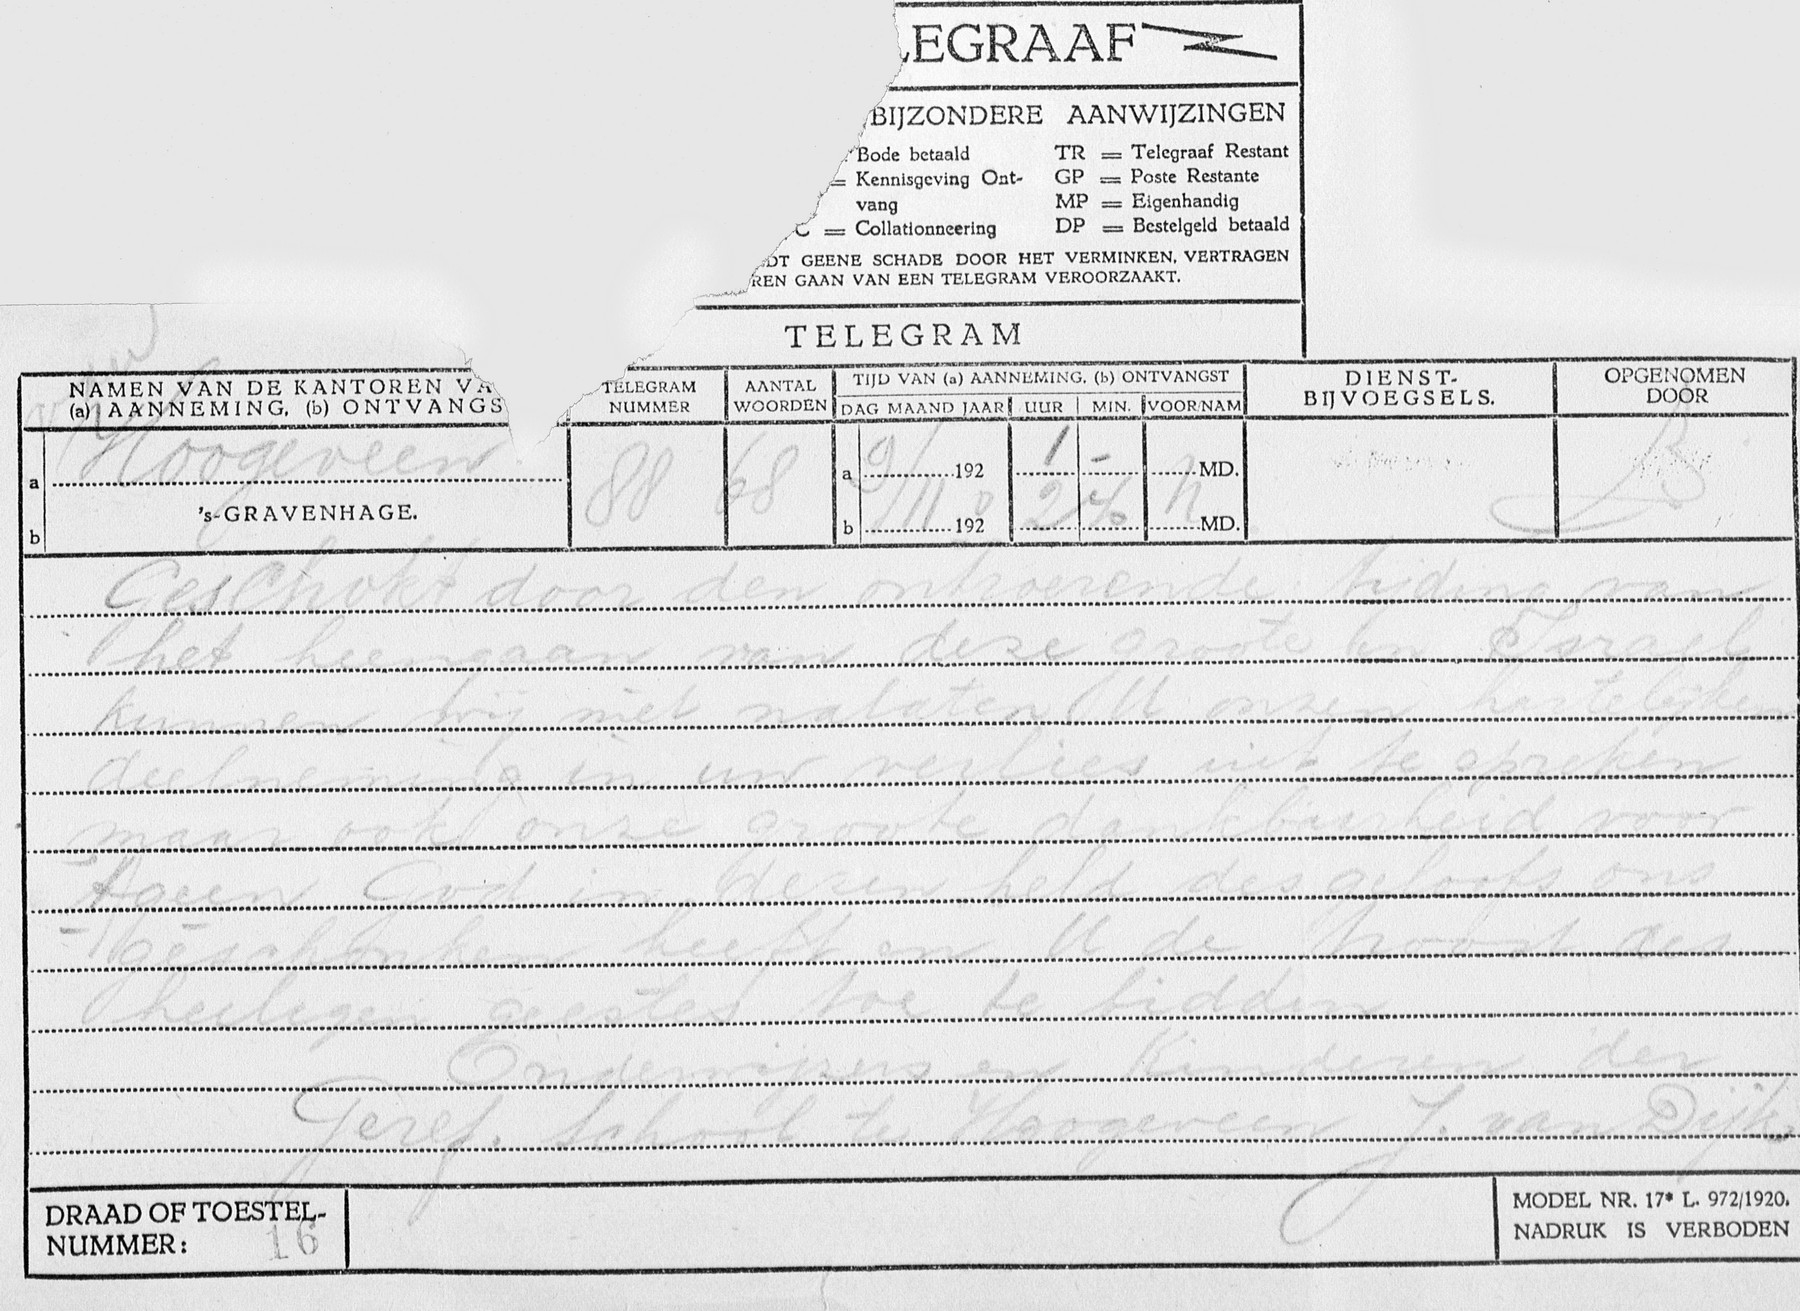 LEGRAAF
BIJZONDERE AANWIJZINGEN
Bode betaald TR = Telegraaf Restant
= Kennisgeving Ont- GP = Poste Restante
vang MP = Eigenhandig
C = Collationneering DP = Bestelgeld betaald
DT GEENE SCHADE DOOR HET VERMINKEN, VERTRAGEN
REN GAAN VAN EEN TELEGRAM VEROORZAAKT.
TELEGRAM
NAMEN VAN DE KANTOREN VA
(a) AANNEMING, (b) ONTVANGS
TELEGRAM NUMMER
AANTAL WOORDEN
TIJD VAN (a) AANNEMING, (b) ONTVANGST
DAG MAAND JAAR UUR MIN. VOOR/NAM
DIENST-
BIJVOEGSELS.
OPGENOMEN
DOOR
a Hoogeveen 88 68 a 9/ 192 1 - MD.
b 's-GRAVENHAGE. b 9/11 0 192 2 26 n MD.
Geschokt door den ontroerende tijding van
het heengaan van deze groote in Israel
kunnen wij niet nalaten U onzen hartelijken
deelneming in uw verlies uit te spreken
maar ook onze groote dankbaarheid voor
tgeen God in dezen held des geloofs ons
geschonken heeft en U de troost des
heiligen geestes toe te bidden
Onderwijzers en Kinderen der
Geref. School te Hoogeveen J. van Dijk
DRAAD OF TOESTEL-
NUMMER: 16
MODEL NR. 17* L. 972/1920.
NADRUK IS VERBODEN